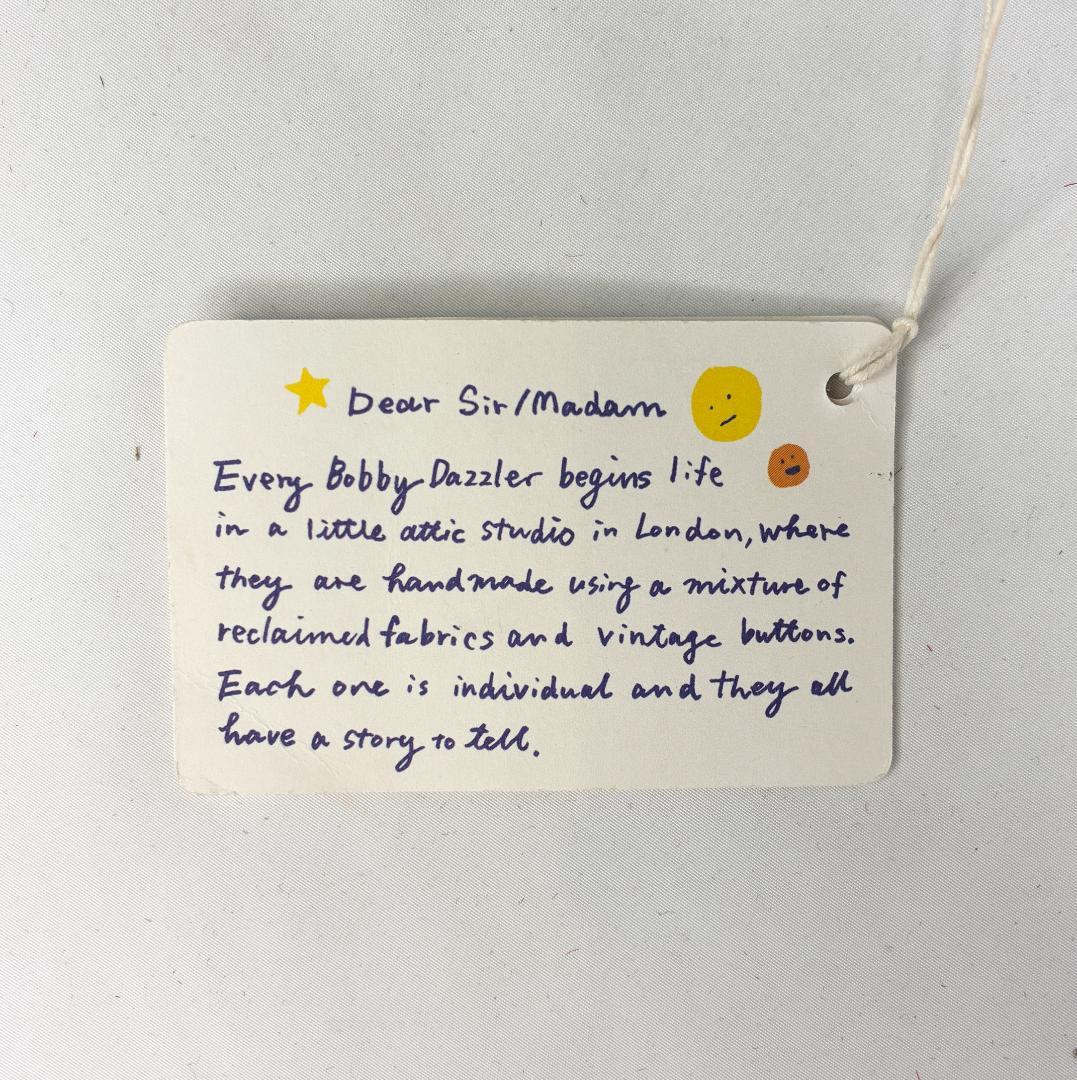 Dear Sir/Madam
Every Bobby Dazzler begins life
in a little attic studio in London, where
they are handmade using a mixture of
reclaimed fabrics and vintage buttons.
Each one is individual and they all
have a story to tell.